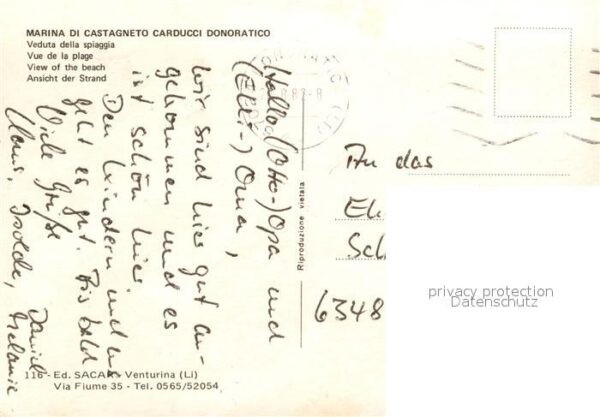 MARINA DI CASTAGNETO CARDUCCI DONORATICO
Veduta della spiaggia
Vue de la plage
View of the beach
Ansicht der Strand
Hallo (Otto-)Opa und
(Elli-) Oma,
wir sind hier gut an-
gekommen und es
ist schön hier.
Den Kindern und uns
geht es gut. Bis bald
Viele Grüße
Klaus, Isolde, Daniel
Melanie
Riproduzione vietata
An das
6348
privacy protection
Datenschutz
116 - Ed. SACAR - Venturina (Li)
Via Fiume 35 - Tel. 0565/52054